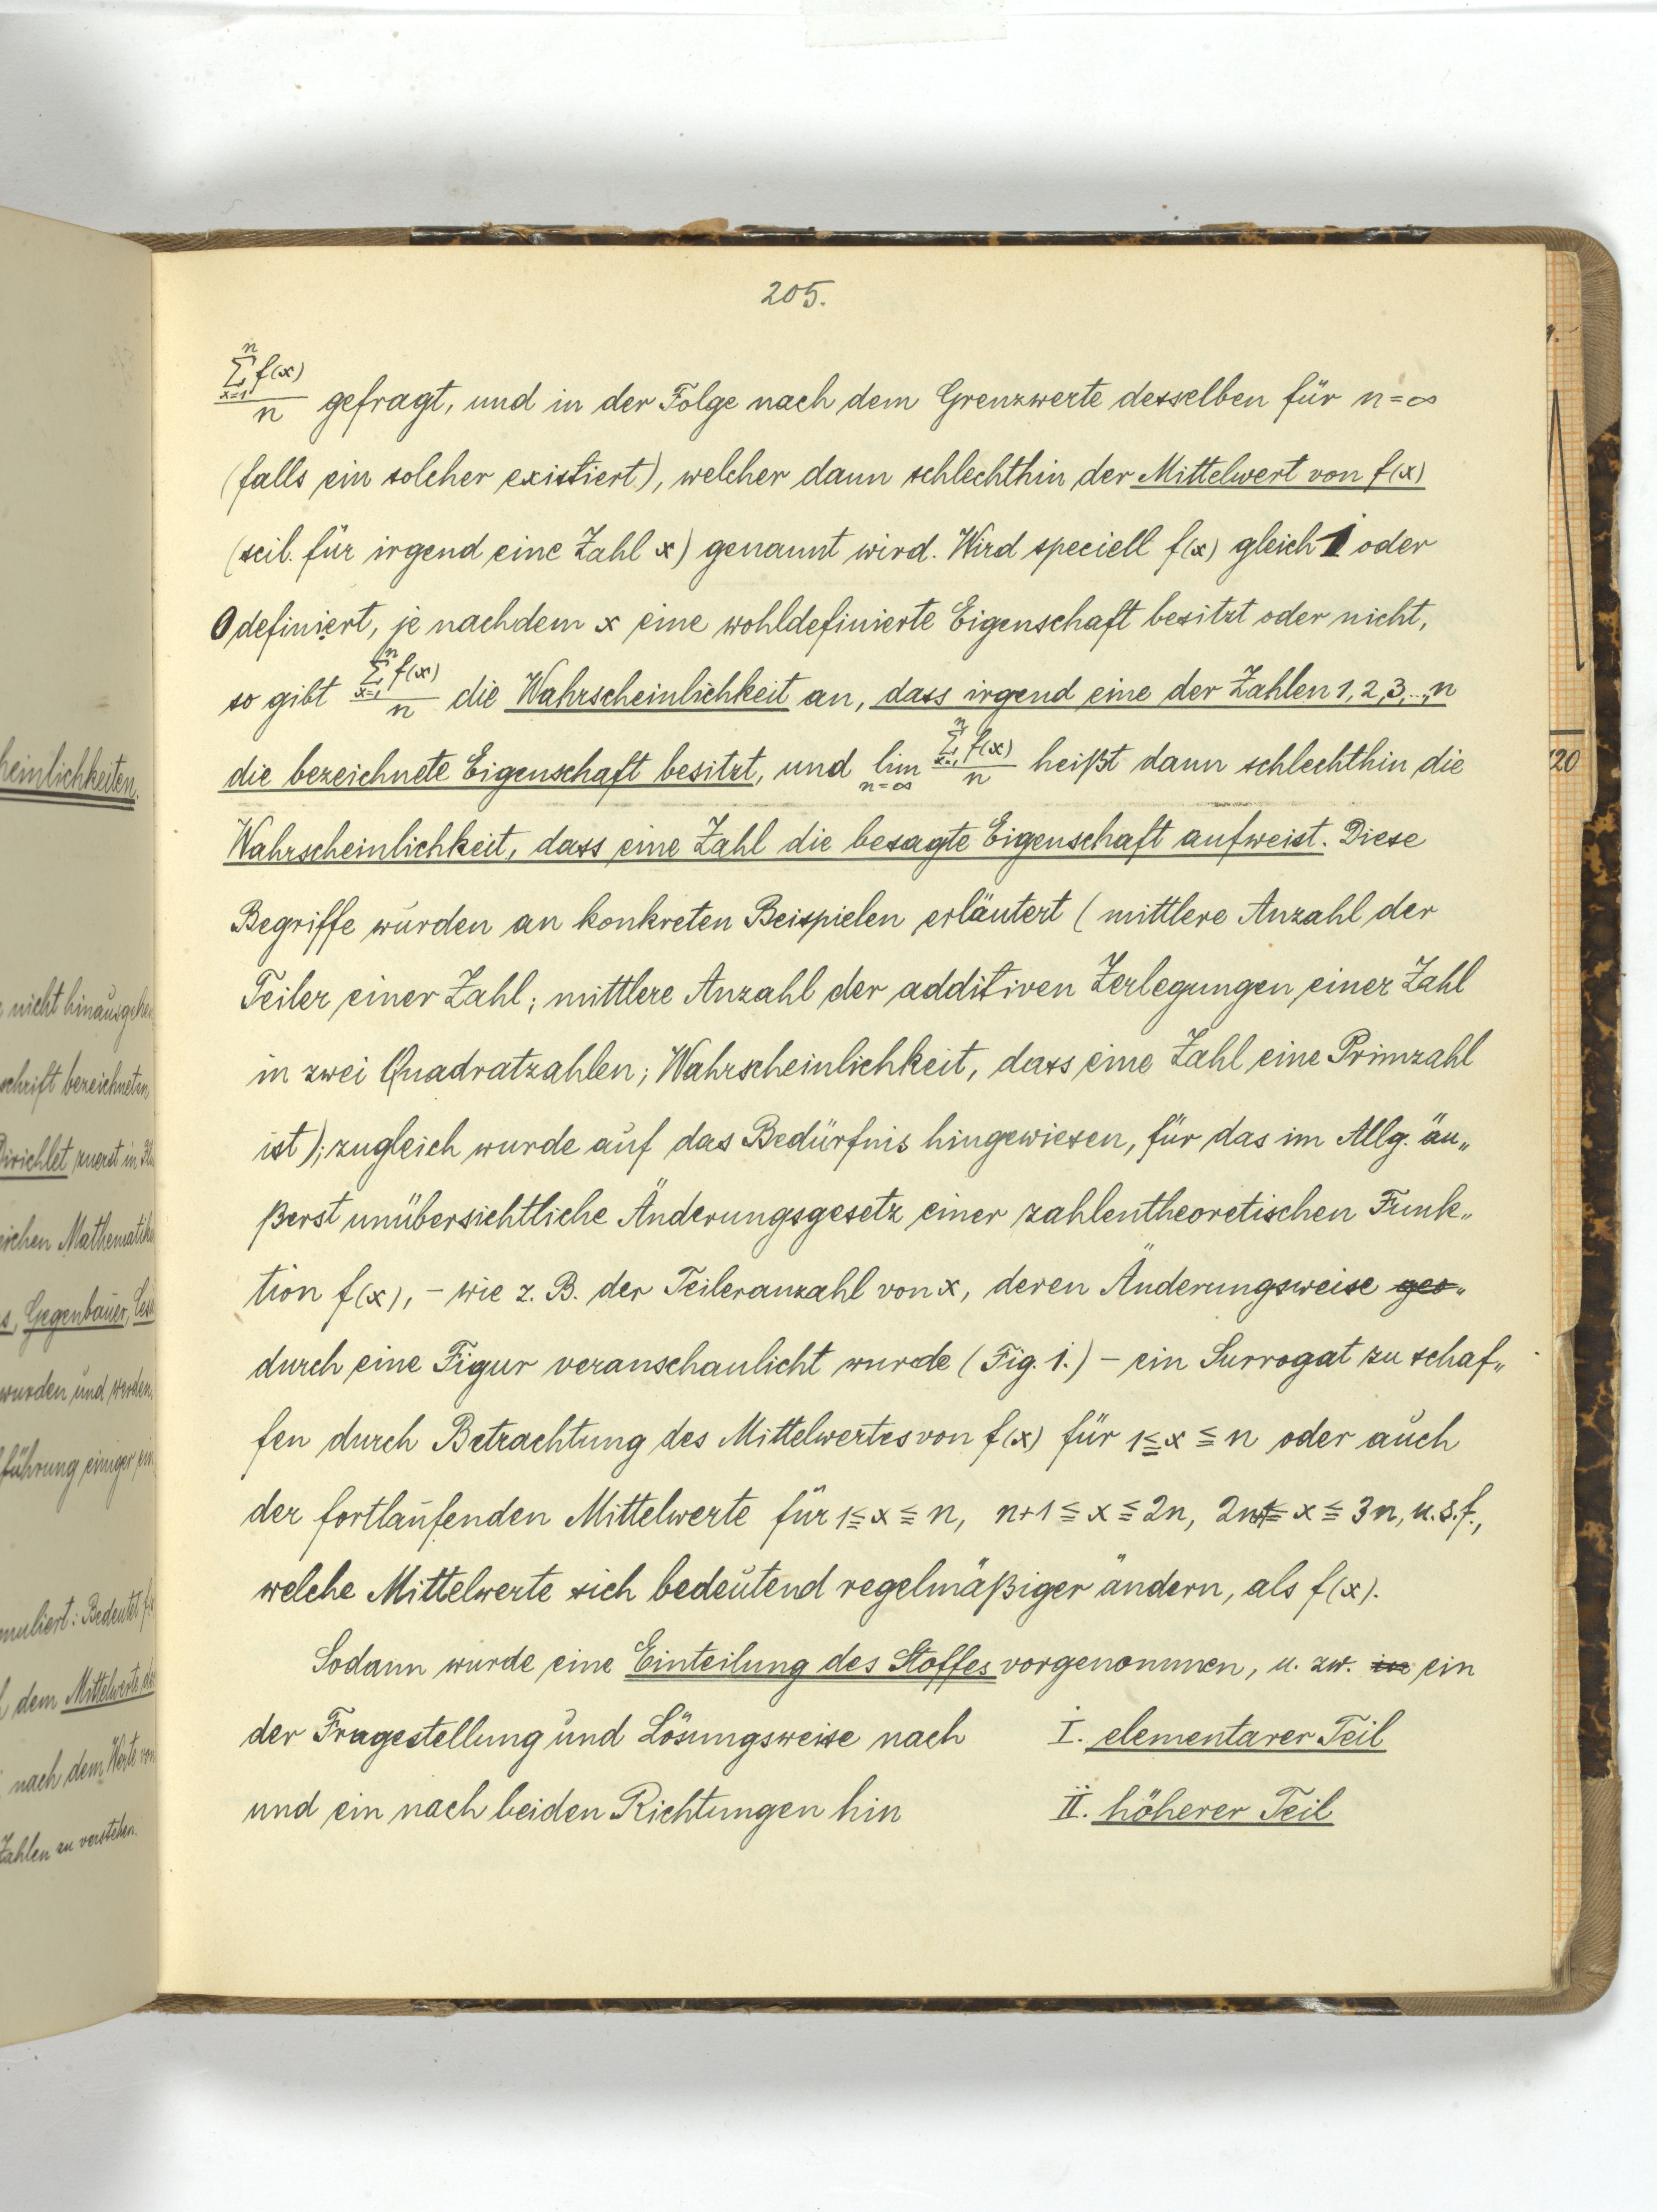 205.
$\frac{\sum_{x=1}^{n} f(x)}{n}$ gefragt, und in der Folge nach dem Grenzwerte desselben für n=∞
(falls ein solcher existiert), welcher dann schlechthin der Mittelwert von f(x)
(scil. für irgend eine Zahl x) genannt wird. Wird speciell f(x) gleich 1 oder
0 definiert, je nachdem x eine wohldefinierte Eigenschaft besitzt oder nicht,
so gibt $\frac{\sum_{x=1}^{n} f(x)}{n}$ die Wahrscheinlichkeit an, dass irgend eine der Zahlen 1, 2, 3, ..., n
die bezeichnete Eigenschaft besitzt, und $\lim_{n=\infty} \frac{\sum_{x=1}^{n} f(x)}{n}$ heißt dann schlechthin die
Wahrscheinlichkeit, dass eine Zahl die besagte Eigenschaft aufweist. Diese
Begriffe wurden an konkreten Beispielen erläutert (mittlere Anzahl der
Teiler einer Zahl; mittlere Anzahl der additiven Zerlegungen einer Zahl
in zwei Quadratzahlen; Wahrscheinlichkeit, dass eine Zahl eine Primzahl
ist); zugleich wurde auf das Bedürfnis hingewiesen, für das im Allg. äu„
ßerst unübersichtliche Änderungsgesetz einer zahlentheoretischen Funk„
tion f(x), – wie z. B. der Teileranzahl von x, deren Änderungsweise ges„
durch eine Figur veranschaulicht wurde (Fig. 1.) – ein Surrogat zu schaf„
fen durch Betrachtung des Mittelwertes von f(x) für 1≦x≦n oder auch
der fortlaufenden Mittelwerte für 1≦x≦n, n+1≦x≦2n, 2n+1≦x≦3n, u.s.f.,
welche Mittelwerte sich bedeutend regelmäßiger ändern, als f(x).
Sodann wurde eine Einteilung des Stoffes vorgenommen, u. zw. in ein
der Fragestellung und Lösungsweise nach I. elementarer Teil
und ein nach beiden Richtungen hin II. höherer Teil
heinlichkeiten.
nicht hinausgehen
schrift bezeichneten
Dirichlet zuerst in
Mathematik
Gegenbauer,
wurden und werden.
führung einiger ein
muliert: Bedeutet
dem Mittelwerte der
nach dem Werte von
Zahlen zu verstehen.
120